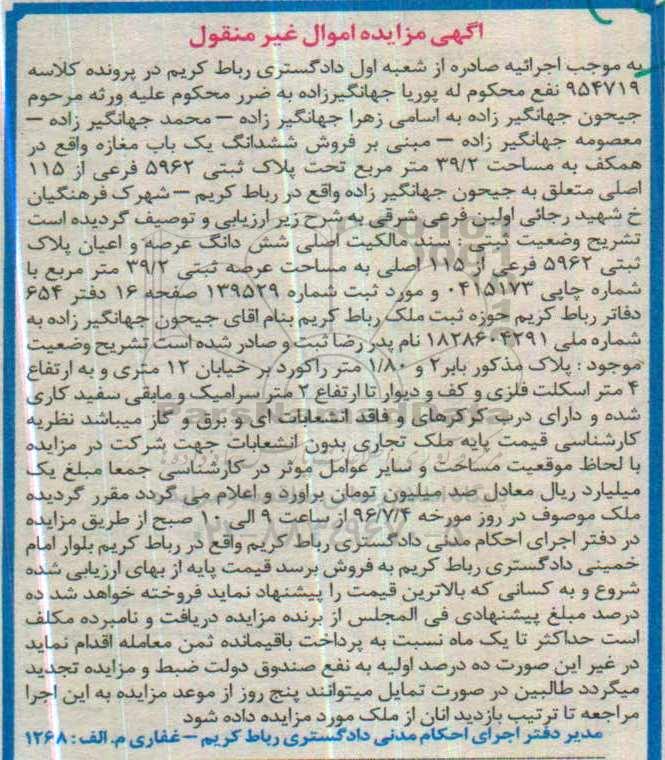 اگهی مزایده اموال غیر منقول
به موجب اجرائیه صادره از شعبه اول دادگستری رباط کریم در پرونده کلاسه
۹۵۴۷۱۹ نفع محکوم له پوریا جهانگیرزاده به ضرر محکوم علیه ورثه مرحوم
جیحون جهانگیر زاده به اسامی زهرا جهانگیر زاده – محمد جهانگیر زاده –
معصومه جهانگیر زاده – مبنی بر فروش ششدانگ یک باب مغازه واقع در
همکف به مساحت ۳۹/۲ متر مربع تحت پلاک ثبتی ۵۹۶۲ فرعی از ۱۱۵
اصلی متعلق به جیحون جهانگیر زاده واقع در رباط کریم – شهرک فرهنگیان
خ شهید رجائی اولین فرعی شرقی به شرح زیر ارزیابی و توصیف گردیده است
تشریح وضعیت ثبتی : سند مالکیت اصلی شش دانگ عرصه و اعیان پلاک
ثبتی ۵۹۶۲ فرعی از ۱۱۵ اصلی به مساحت عرصه ثبتی ۳۹/۲ متر مربع با
شماره چاپی ۰۴۱۵۱۷۳ و مورد ثبت شماره ۱۳۹۵۲۹ صفحه ۱۶ دفتر ۶۵۴
دفاتر رباط کریم حوزه ثبت ملک رباط کریم بنام اقای جیحون جهانگیر زاده به
شماره ملی ۱۸۲۸۶۰۴۲۹۱ نام پدر رضا ثبت و صادر شده است تشریح وضعیت
موجود : پلاک مذکور بابر۲ و ۱/۸۰ متر راکورد بر خیابان ۱۲ متری و به ارتفاع
۴ متر اسکلت فلزی و کف و دیوار تا ارتفاع ۲ متر سرامیک و مابقی سفید کاری
شده و دارای درب کرکرهای و فاقد انشعابات ای و برق و گاز میباشد نظریه
کارشناسی قیمت پایه ملک تجاری بدون انشعابات جهت شرکت در مزایده
با لحاظ موقعیت مساحت و سایر عوامل موثر در کارشناسی جمعا مبلغ یک
میلیارد ریال معادل صد میلیون تومان براورد و اعلام می گردد مقرر گردیده
ملک موصوف در روز مورخه ۹۶/۷/۴ از ساعت ۹ الی ۱۰ صبح از طریق مزایده
در دفتر اجرای احکام مدنی دادگستری رباط کریم واقع در رباط کریم بلوار امام
خمینی دادگستری رباط کریم به فروش برسد قیمت پایه از بهای ارزیابی شده
شروع و به کسانی که بالاترین قیمت را پیشنهاد نماید فروخته خواهد شد ده
درصد مبلغ پیشنهادی فی المجلس از برنده مزایده دریافت و نامبرده مکلف
است حداکثر تا یک ماه نسبت به پرداخت باقیمانده ثمن معامله اقدام نماید
در غیر این صورت ده درصد اولیه به نفع صندوق دولت ضبط و مزایده تجدید
میگردد طالبین در صورت تمایل میتوانند پنج روز از موعد مزایده به این اجرا
مراجعه تا ترتیب بازدید انان از ملک مورد مزایده داده شود
مدیر دفتر اجرای احکام مدنی دادگستری رباط کریم – غفاری م. الف : ۱۲۶۸